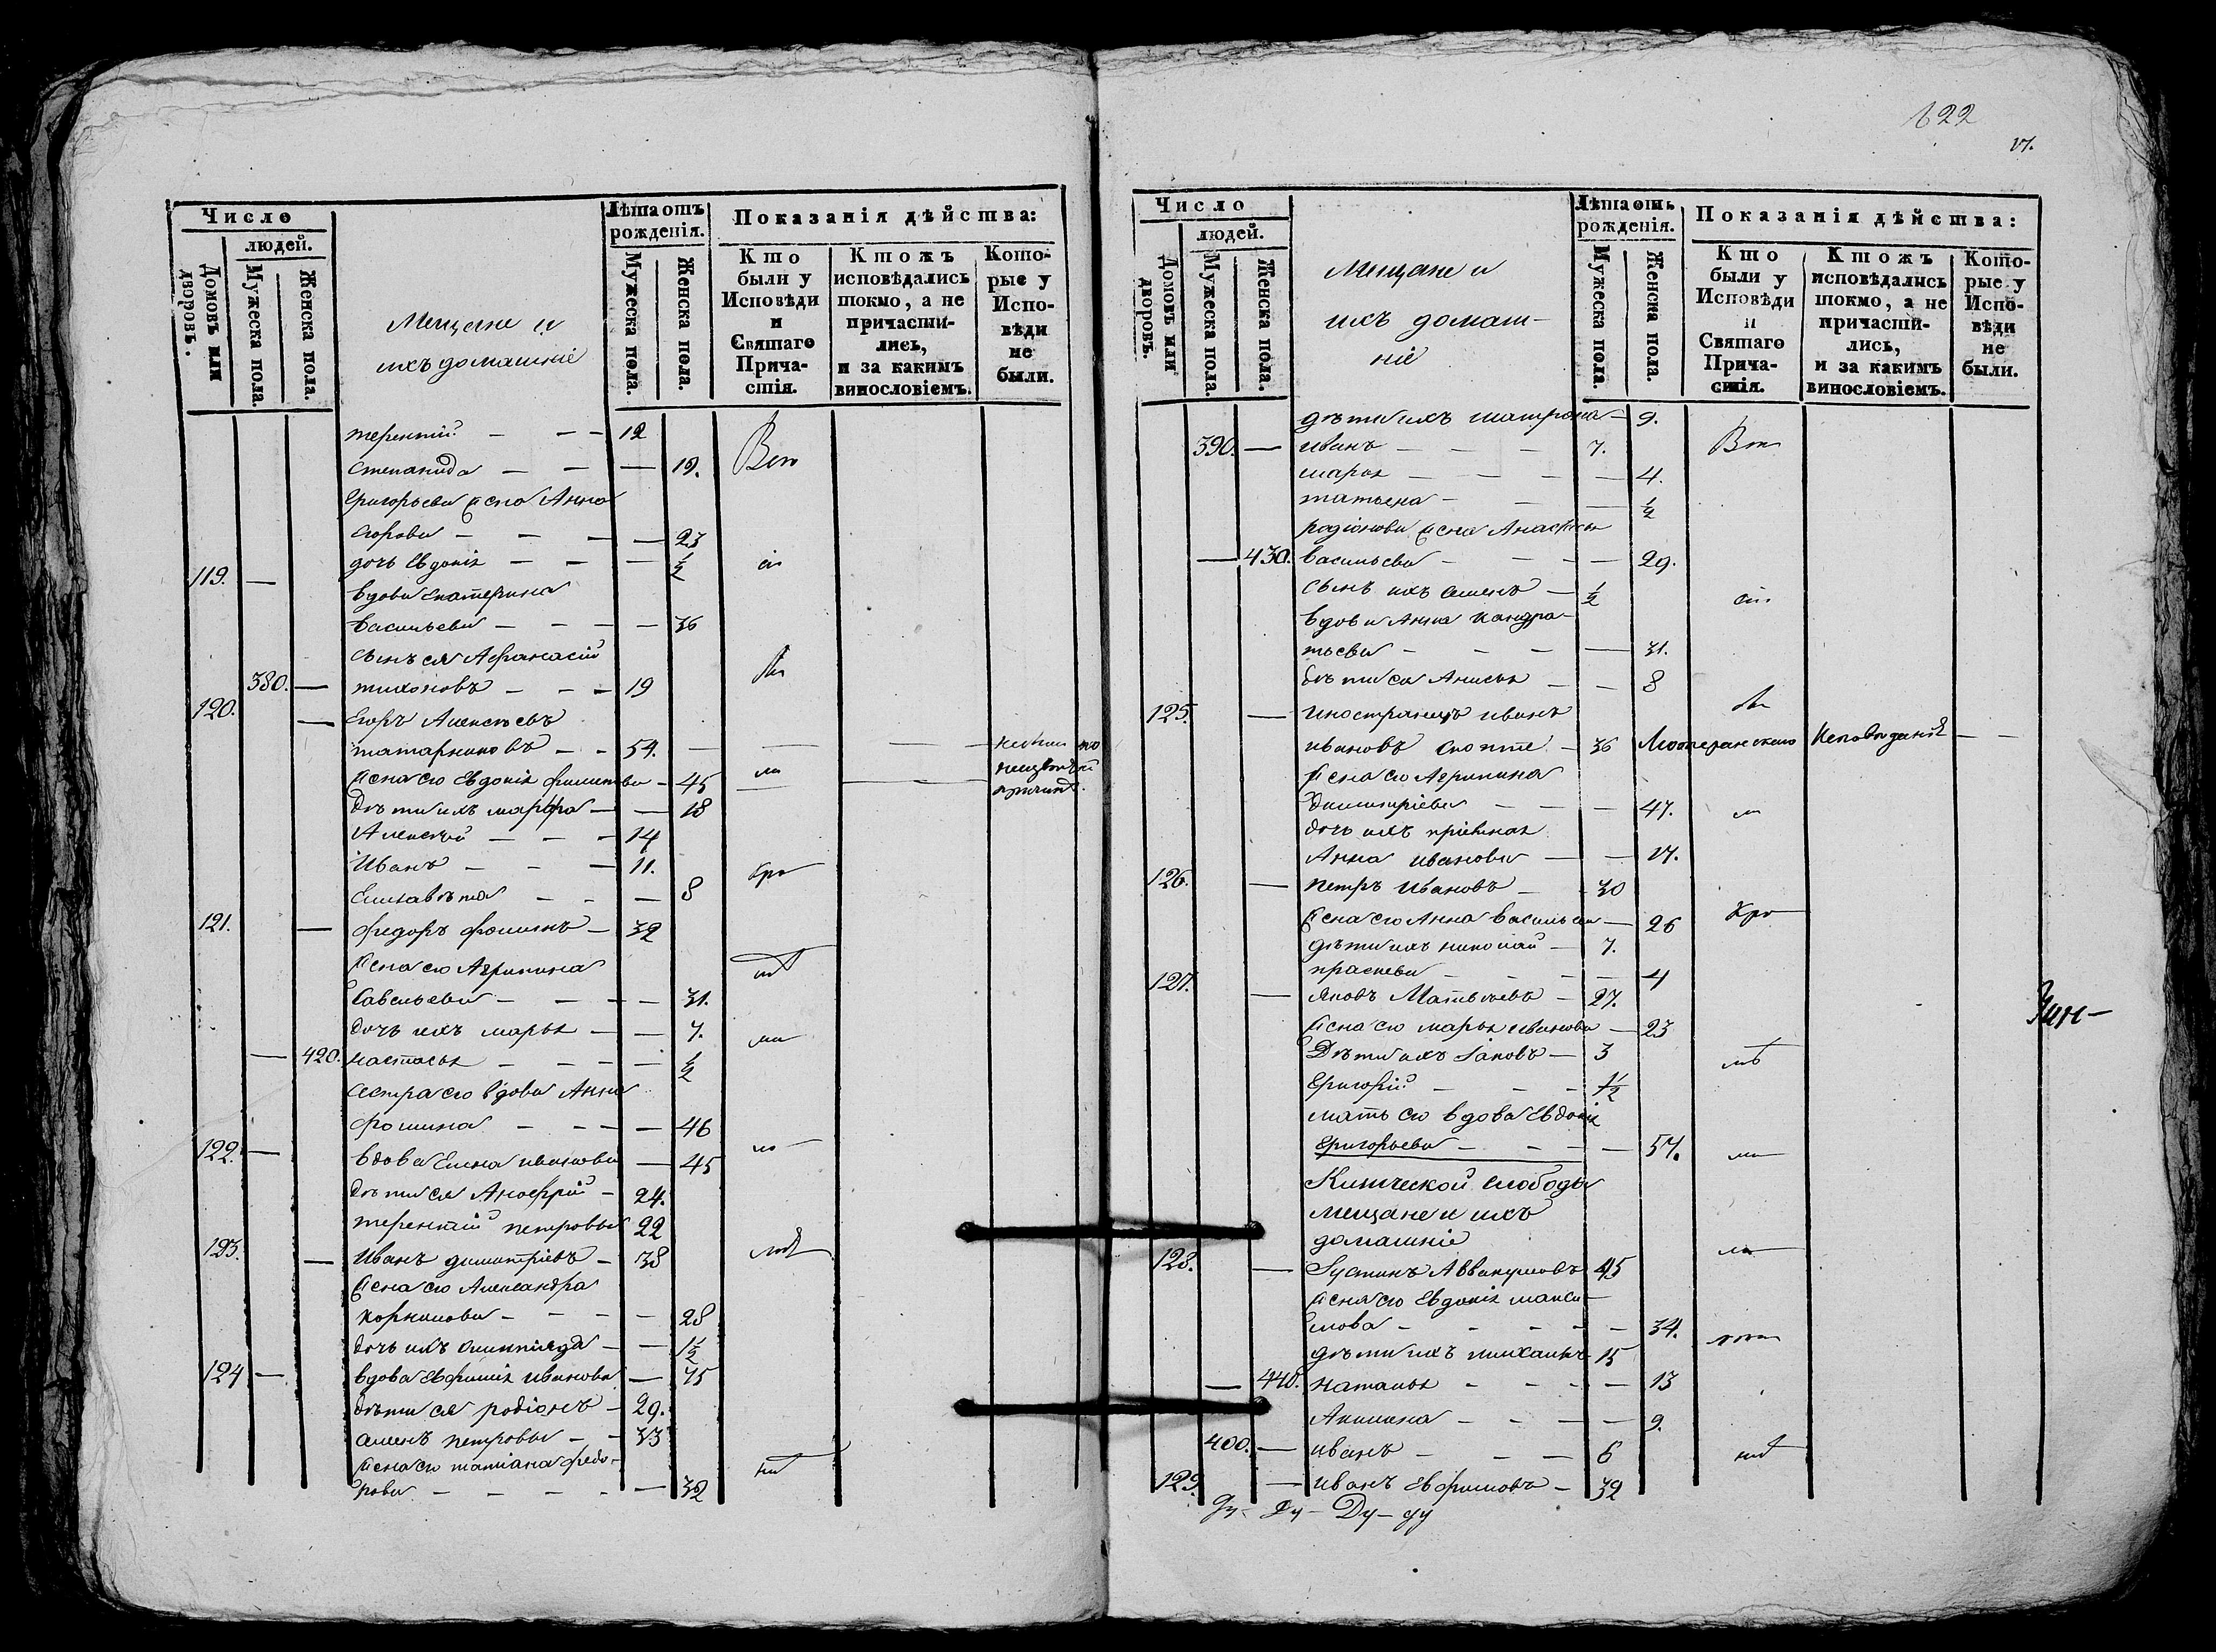 Число
людей.
Домовъ или дворовъ.
Мужеска пола.
Женска пола.
Мещане и
ихъ домашніе
Лѣта отъ рожденія.
Мужеска пола.
Женска пола.
Показанія дѣйства:
Кто были у Исповѣди и Святаго Прича-стія.
Ктожъ исповѣдались токмо, а не причасти-лись, и за какимъ винословіемъ.
Кото-рые у Испо-вѣди не были.
терентій — — — 12
степанида — — — 19.
григорьева жена Анна
егорова — — — — 23
дочь Евдокія — — — 1/2
119. — вдова екатерина
васильева — — — — 36
сынъ ея Афанасій
380. — тихоновъ — — — 19
120. — Егоръ Алексѣевъ
татарниковъ — — 54. — — —
жена его Евдокія — 45
дѣти ихъ марфа — — 18
Алексѣй — — — 14
Иванъ — — — 11.
Елисавѣта — — — 8
121. — федоръ фоминъ — 32
жена его Агрипина
савельева — — — — 31.
дочь ихъ марья — — 7.
— 420. настасья — — — — 1/2
сестра его вдова Анна
фомина — — — — 46
122. — вдова Елена иванова — 45
дѣти ея — 24.
терентій петровы 22
123. — Иванъ димитріевъ — 38
жена его Александра
корнилова — — — — 28
дочь ихъ — — 1 1/2
124 — вдова Евфимія иванова — 75
дѣти ея родіонъ — 29.
семенъ петровы — — 33
жена его татіана федо-
рова — — — — — 32
622
17.
Число
людей.
Домовъ или дворовъ.
Мужеска пола.
Женска пола.
Мещане и
ихъ домаш-
ніе
Лѣта отъ рожденія.
Мужеска пола.
Женска пола.
Показанія дѣйства:
Кто были у Исповѣди и Святаго Прича-стія.
Ктожъ исповѣдались токмо, а не причасти-лись, и за какимъ винословіемъ.
Кото-рые у Испо-вѣди не были.
дѣти ихъ матрона — 9.
390. — иванъ — — — 7.
марья — — — — 4.
татьяна — — — 1/2
родіонова жена
— 430. васильева — — — 29.
сынъ ихъ семенъ — 1/2
вдова Анна кондра-
тьева — — — — 31.
дѣти ея Анисья — — 8
125. — иностранецъ иванъ
ивановъ — 36 Лютеранскаго Исповѣданія — —
жена его Агрипина
димитріева — — — 47.
дочь ихъ пріемная
Анна иванова — — 17.
126. — петръ ивановъ — 30
жена его Анна васильева — 26
дѣти ихъ николай — 7.
прасковья — — — — 4
127. — яковъ Матвѣевъ — 27.
жена его марья иванова — 23
Дѣти ихъ Іаковъ — 3
григорій — — — 1/2
мать его вдова Евдокія
григорьева — — — — 57.
слободы
мещане и ихъ
домашніе
128. — Іустинъ Аввакумовъ 45
жена его Евдокія макси-
мова — — — — — 34.
дѣти ихъ михаилъ — 15
— 440. наталья — — — — 13
Акилина — — — — 9.
400. — иванъ — — — 6
129. — иванъ Евфимовъ — 32